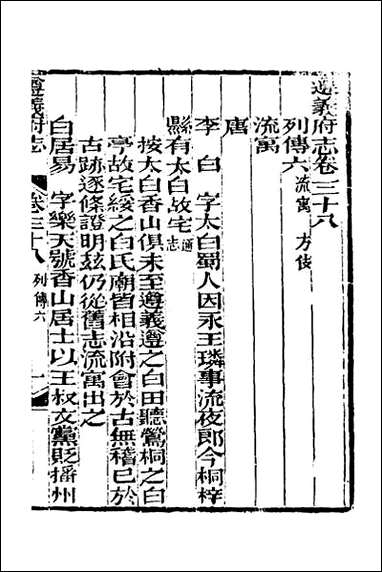 遵義府志卷三十八
列傳六 流寓 方伎
流寓
唐
李白 字太白蜀人因永王璘事流夜郎今桐梓
縣有太白故宅 通志
按太白香山俱未至遵義遵之白田聽鶯桐之白
亭故宅綏之白氏廟皆相沿附會於古無稽已於
古跡逐條證明茲仍從舊志流寓出之
白居易 字樂天號香山居士以王叔文黨貶播州
遵義府志
卷三十八 列傳六 一